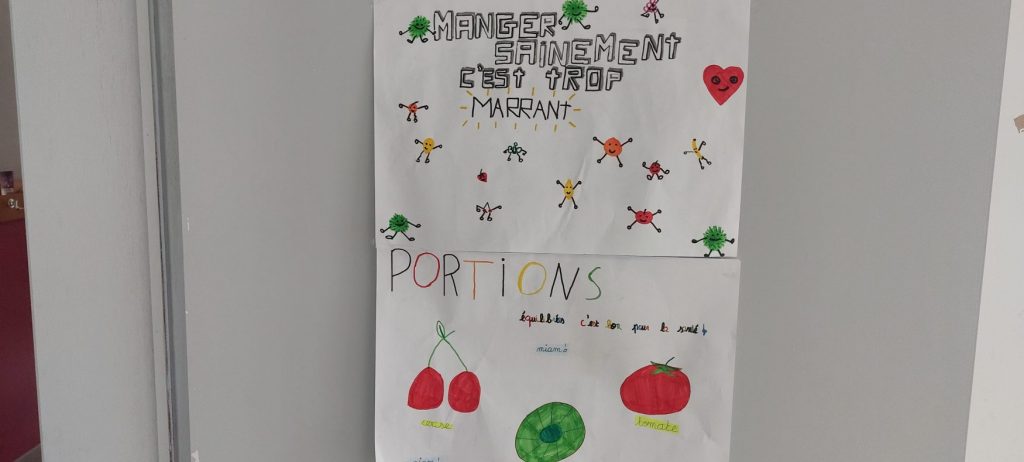 MANGER
SAINEMENT
C'EST TROP
MARRANT
PORTIONS
équilibrés c'est bon pour la santé
miam!
cerise
tomate
miam!